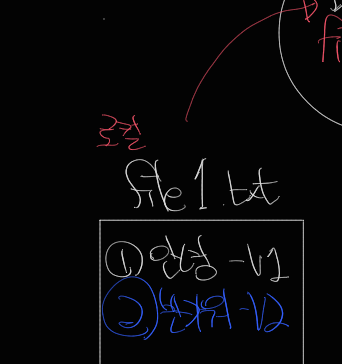 fi
로컬
file1.txt
① 안녕 -V1
② 반가워 -V2